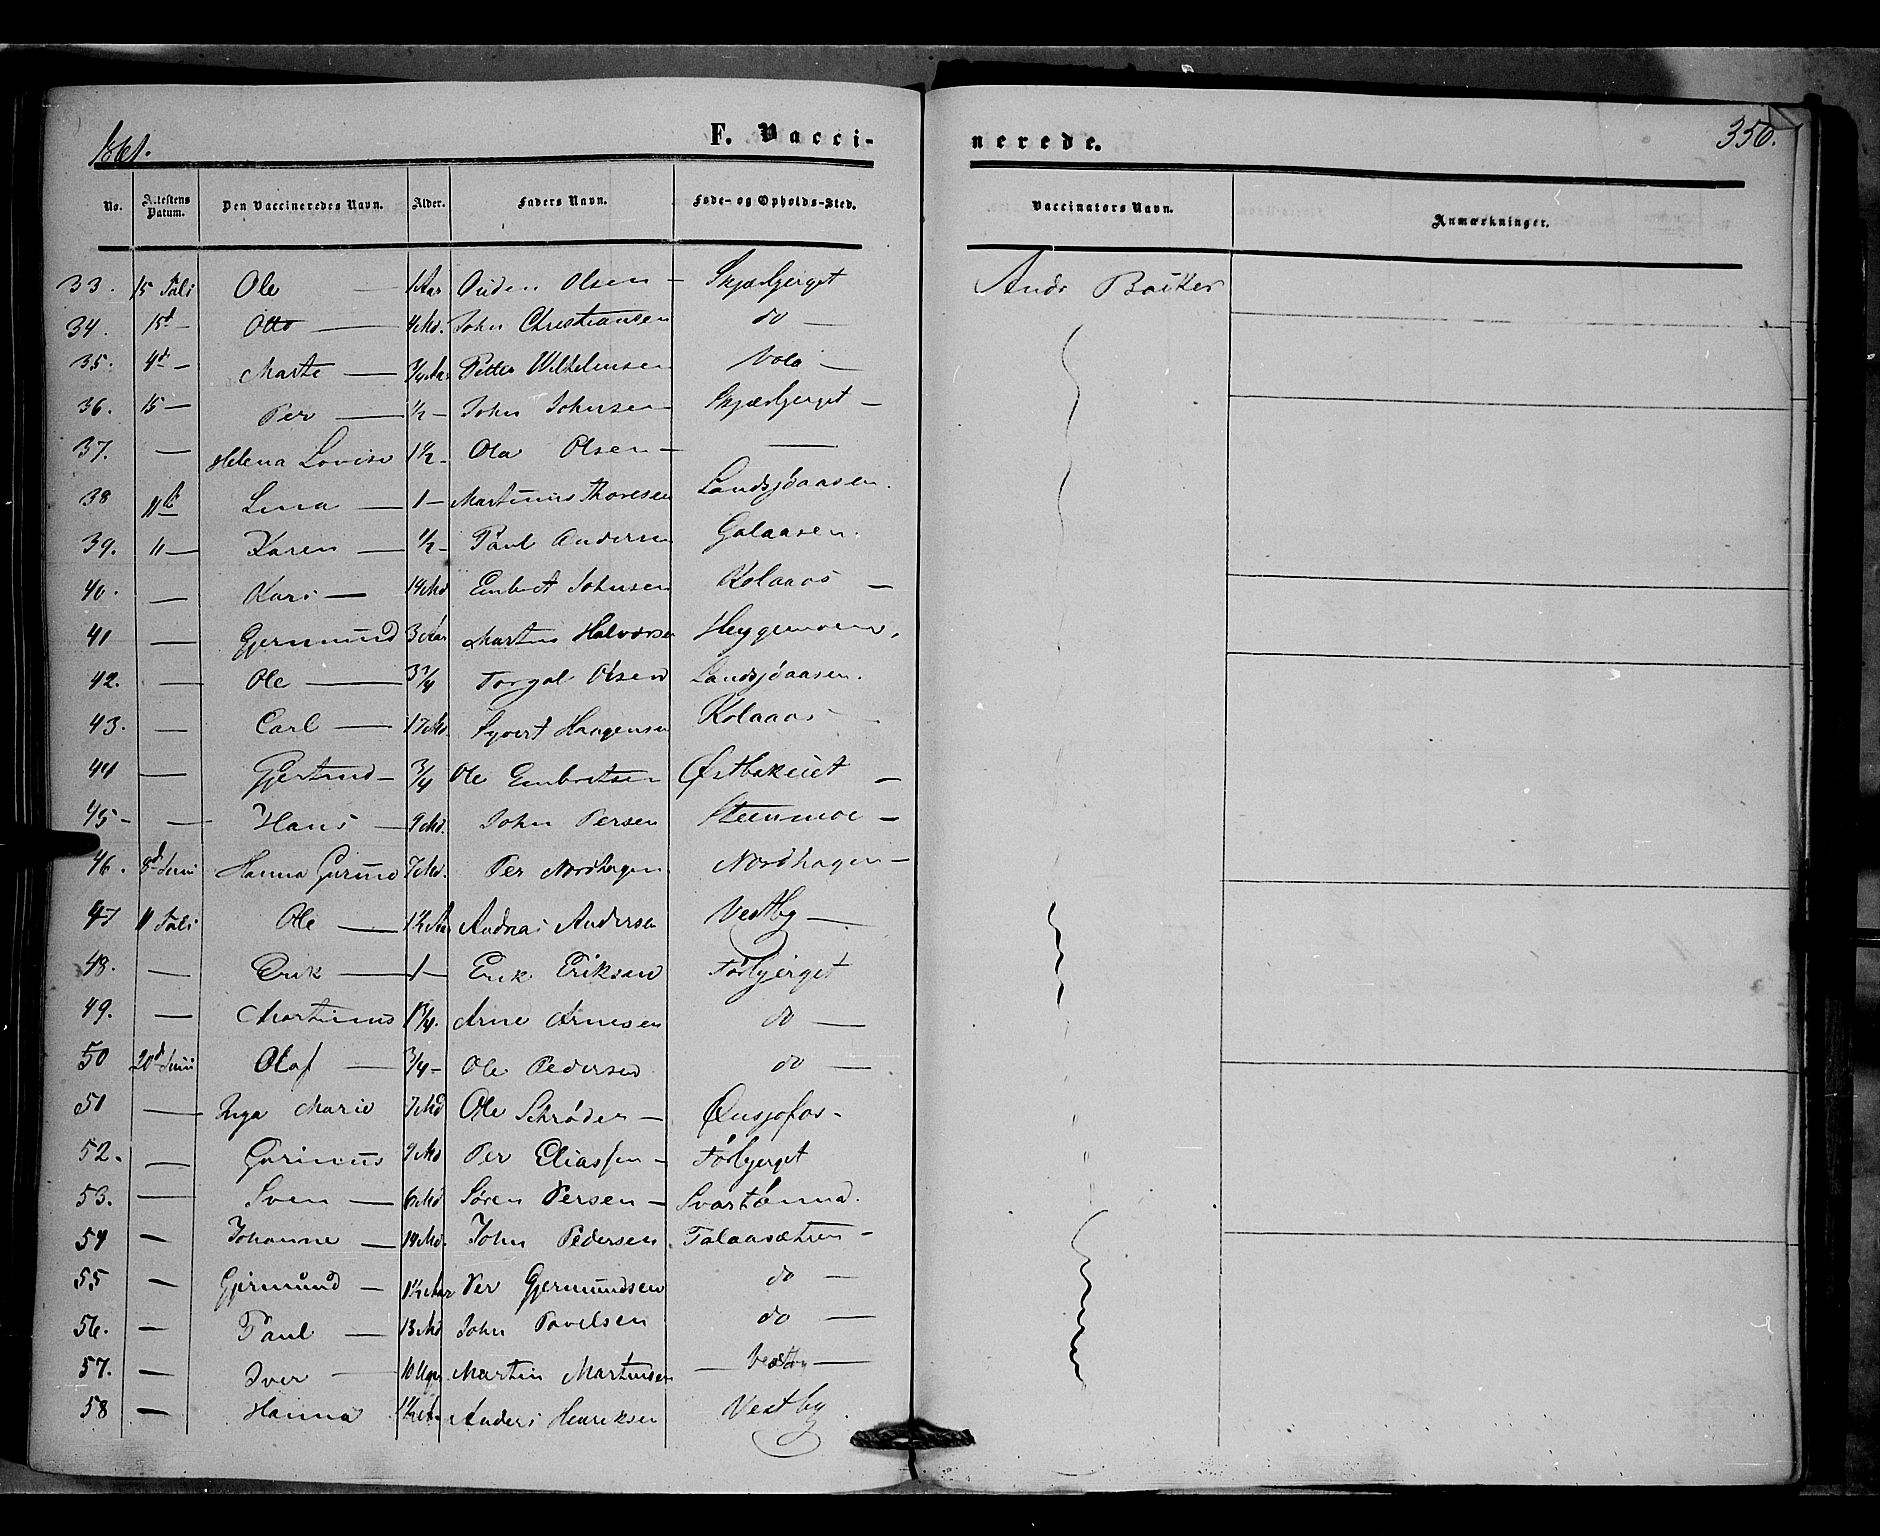 1861.
F. Vacci-
nerede.
350.
No. Attestens Datum. Den Vaccineredes Navn. Alder. Faders Navn. Føde- og Opholds-Sted. Vaccinators Navn. Anmærkninger.
33. 15 Juli Ole — 1 Aar Auden Olsen — Skjærbjerget Andr
34. 15d — Otto — 4 Md. John Christiansen do —
35. 4d — Marte — 3/4 Aar Petter Wilhelmsen —
36. 15 — Per — 1/2 — John Johnsen Skjærbjerget —
37. — Helena Lovise 1 1/2 — Ola Olsen — —
38 11te Lina — 1 — Martinus Thoresen Landsjøaasen.
39. 11 — Karen — 1/2 — Paul Andersen Galaasen.
40. — Kari — 14 Md Embret Johnsen Kolaaos —
41 — Gjermund 3 Aar Martin Halvorsen Heggemoen.
42. — Ole — 3 1/4 Torgal Olsen Landsjøaasen.
43. — Carl — 17 Md. Syvert Haagensen Kolaaos —
44 — Gjertrud — 3/4 Ole Embretsen —
45 — — Hans — 9 Md. John Persen Steenmoe —
46. 8d Juni Hanna 7 Md. Per Nordhagen Nordhagen —
47 11 Juli Ole — 1 1/2 Aar Andreas Andersen Vestby —
48. — Erik — 1 — Erik Eriksen Førbjerget
49. — Martinus 1 3/4. Arne Arnesen do —
50 20d Juni Olaf — 3/4 — Ole Pedersen do —
51 — Inga Marie 7 Md Ole Schrøder —
52. — 9 Md Per Eliassen — Førbjerget
53. — Sven — 6 Md Søren Persen —
54 — Johanne — 14 Md. John Pedersen. Falaasætren —
55 — Gjermund — 1 1/2 Aar Per Gjermundsen do —
56. — Paul — 13 Md John Povelsen do —
57. — Iver — 10 Uger Martin Martinsen — Vestby —
58 — Hanna 1 1/2 Aar Anders Henriksen Vestby.